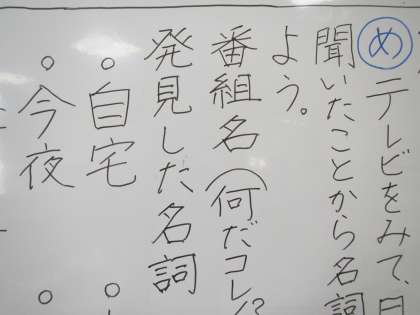 めテレビをみて、
聞いたことから名詞
よう。
番組名(何だコレ!?
発見した名詞
。自宅
。今夜